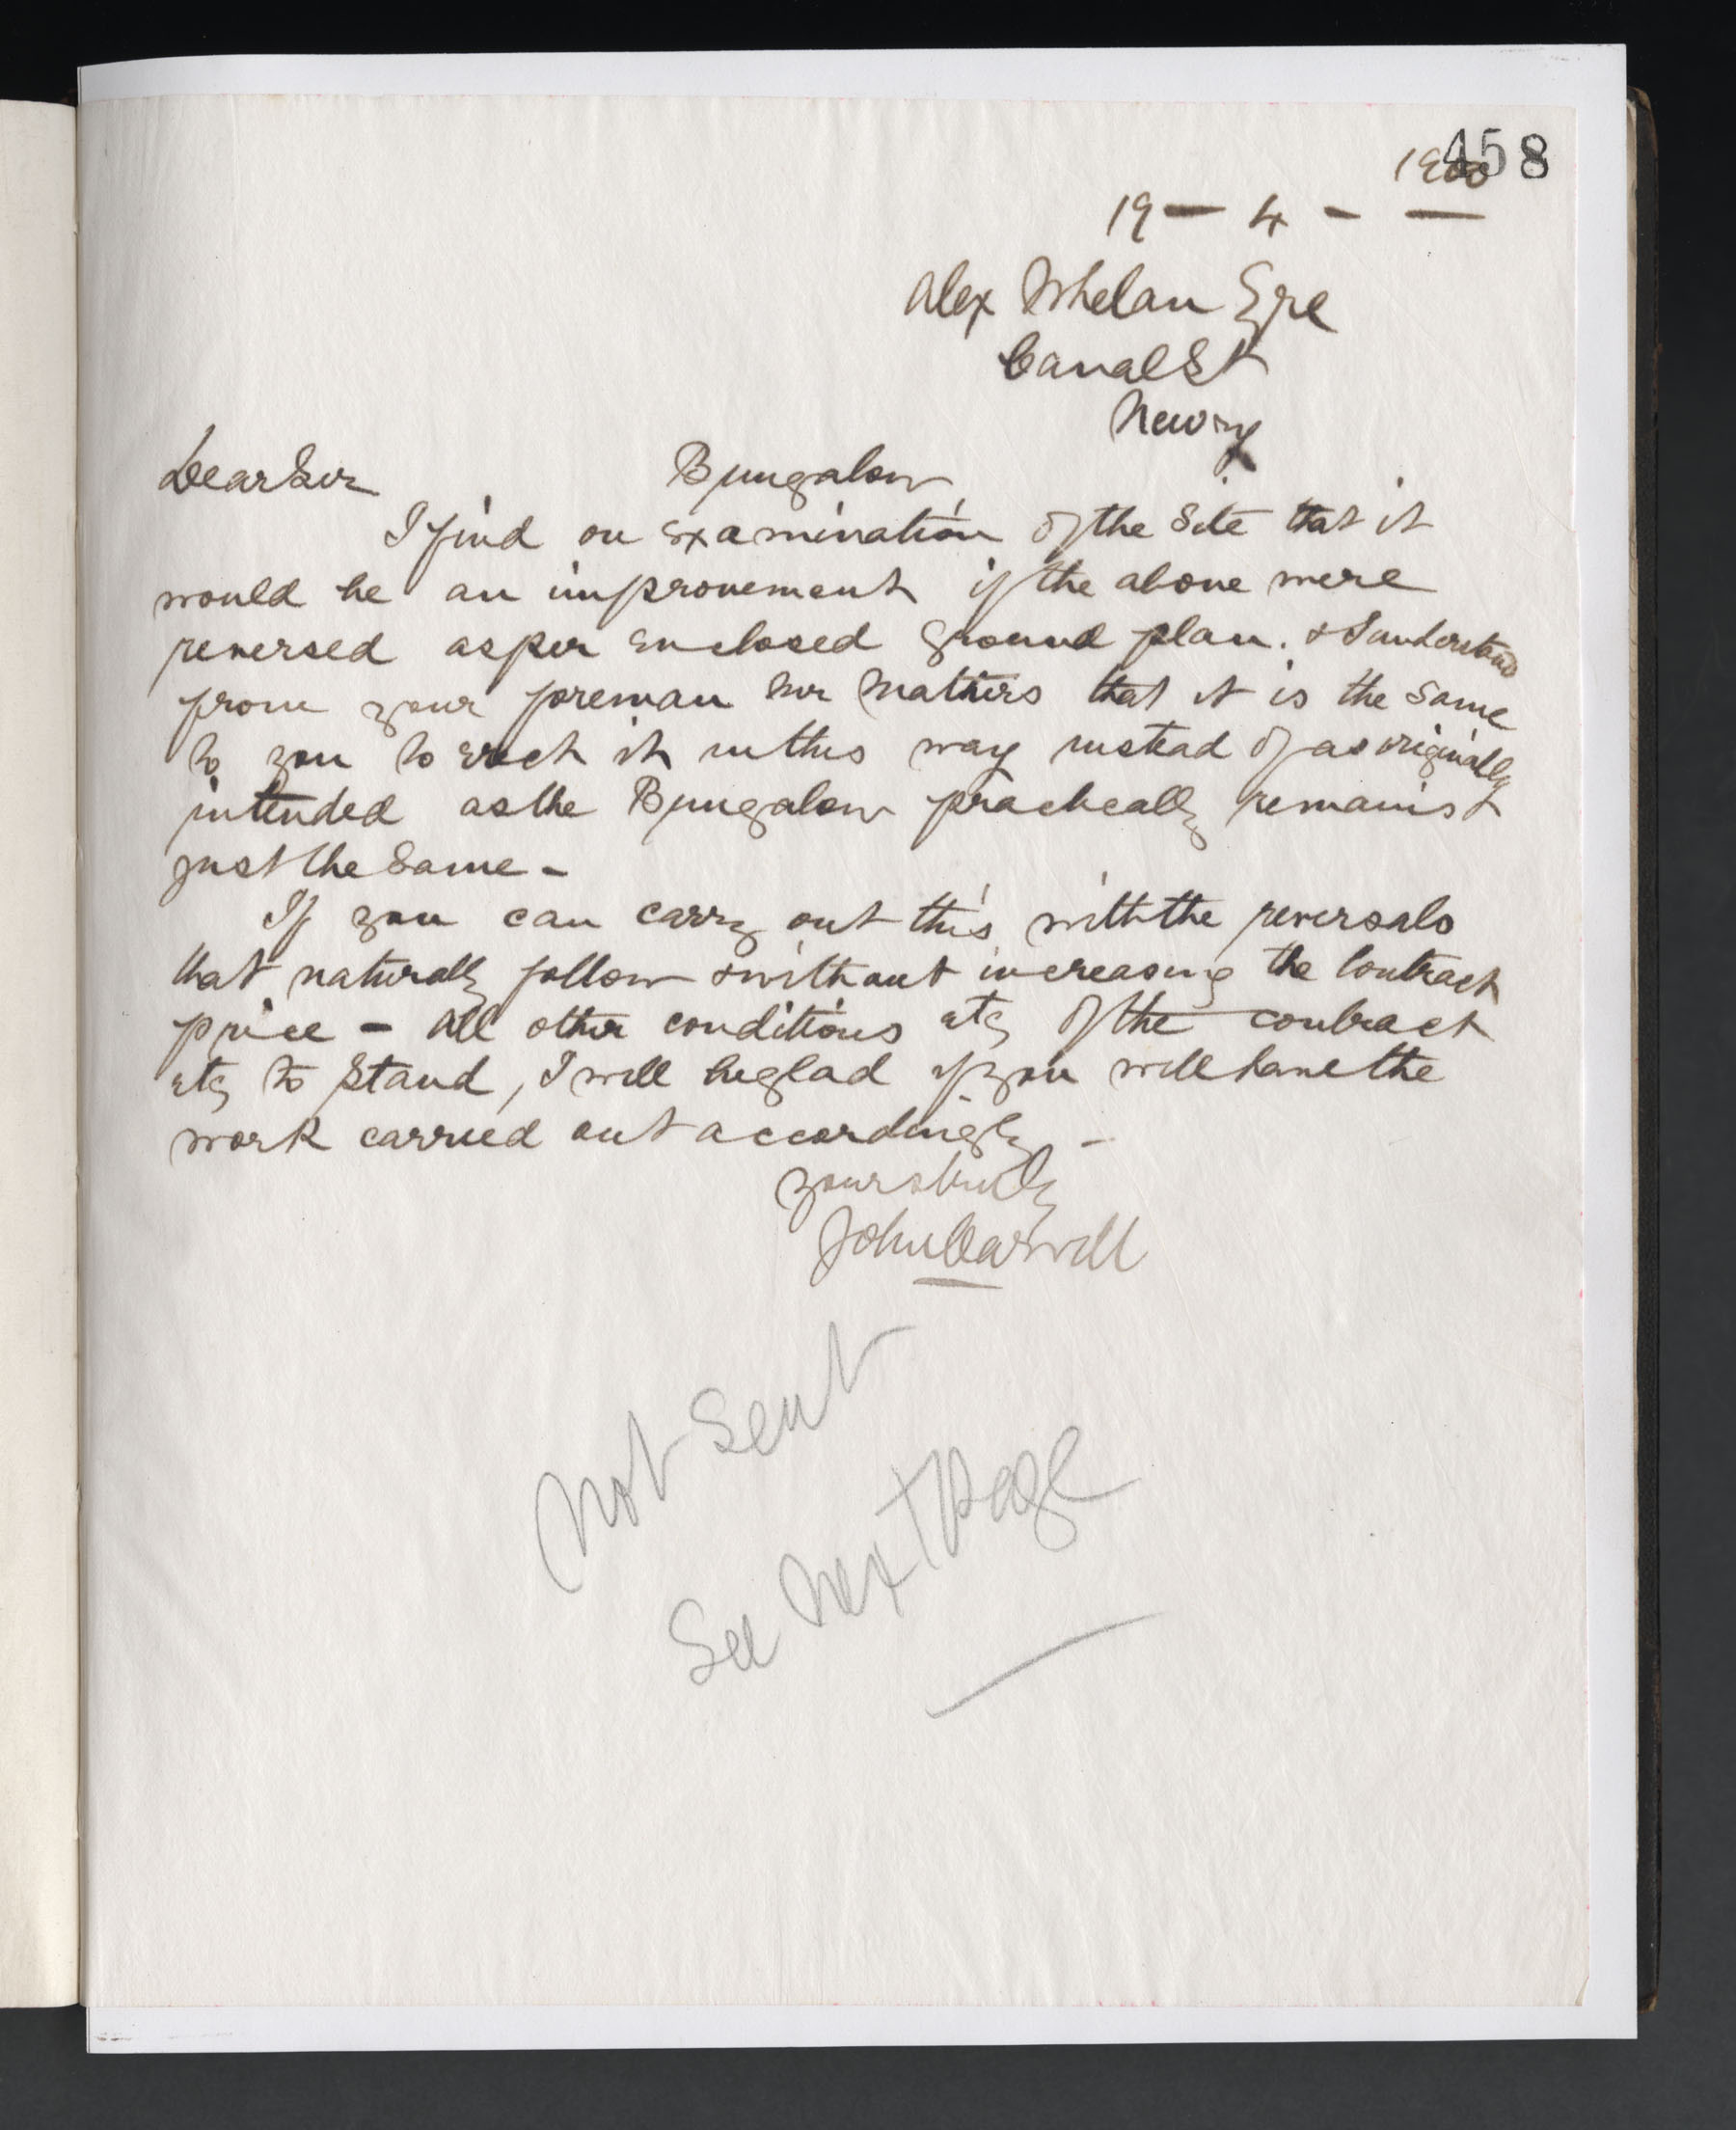 458
1900
19 - 4 - —
Alex Whelan Esqre
Canal St
Newry
Dear Sir
Bungalow
I find on examination of the Site that it
would be an improvement if the above were
reversed as per enclosed ground plan. & I understand
from your foreman Mr that it is the same
to you to erect it in this way instead of as originally
intended as the Bungalow practically remains
just the same -
If you can carry out this with the reversals
that naturally follow & without increasing the Contract
price - all other conditions etc of the contract
etc to stand, I will be glad if you will have the
work carried out accordingly -
Yours truly
John
Not Sent
See Next Page